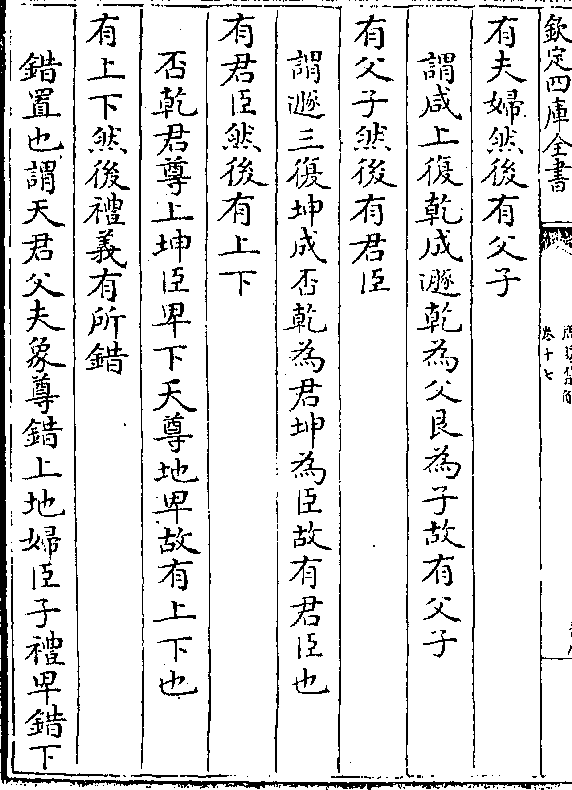 欽定四庫全書
卷十七
有夫婦然後有父子
謂咸上復乾成遯乾為父艮為子故有父子
有父子然後有君臣
謂遯三復坤成否乾為君坤為臣故有君臣也
有君臣然後有上下
否乾君尊上坤臣卑下天尊地卑故有上下也
有上下然後禮義有所錯
錯置也謂天君父夫象尊錯上地婦臣子禮卑錯下